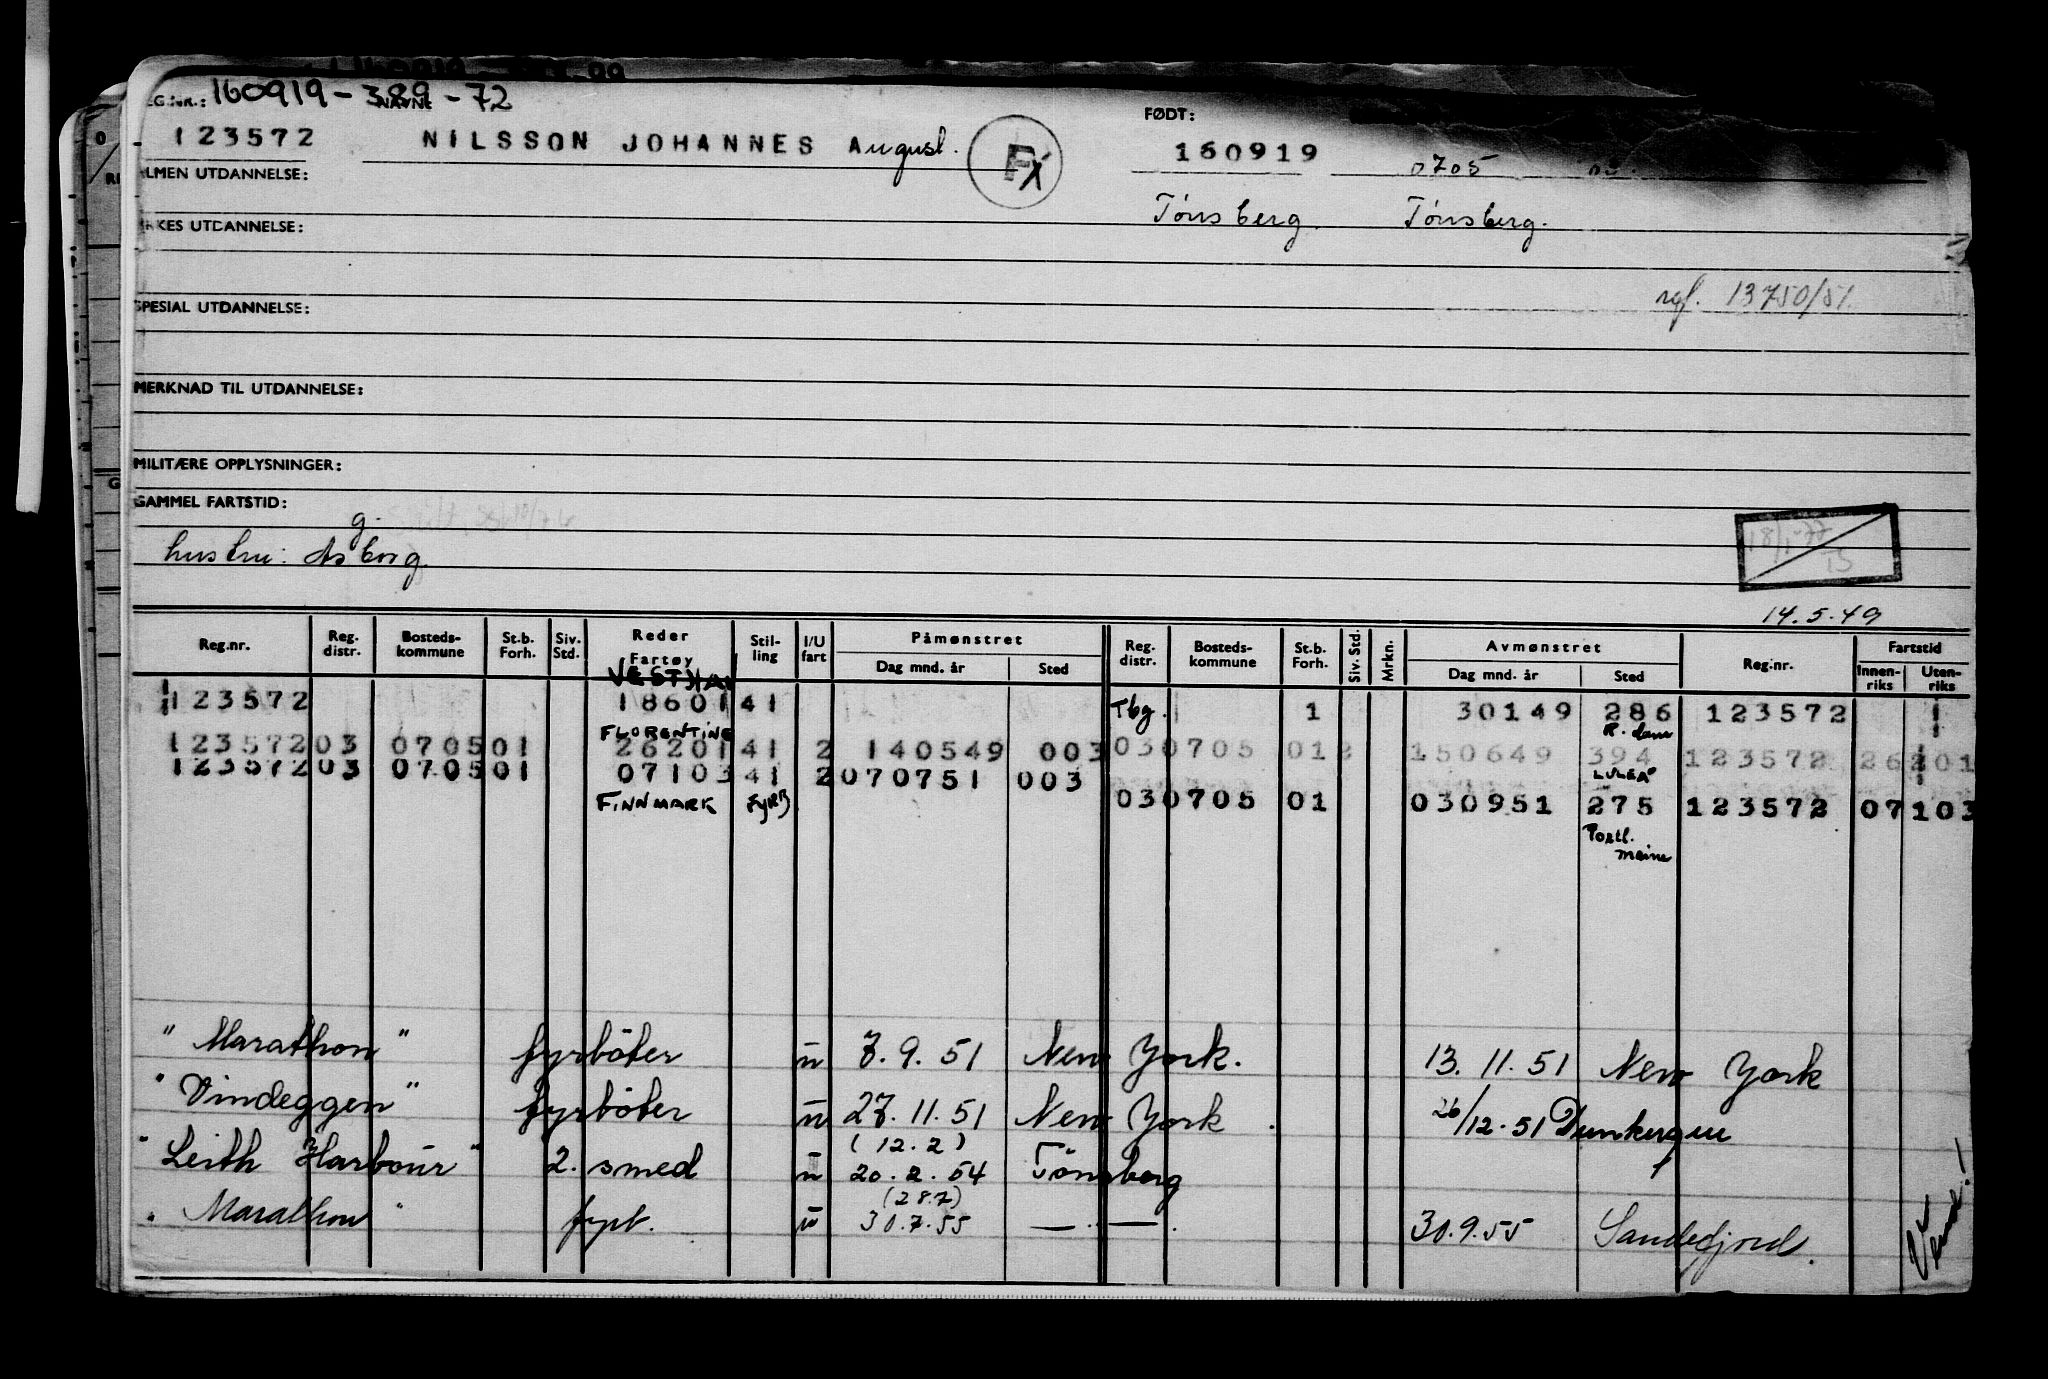 EG.NR.: 160919-389-72 NAVN: FØDT:
123572 NILSSON JOHANNES August. F 160919 0705
ALMEN UTDANNELSE:
Tönsberg. Tönsberg.
YRKES UTDANNELSE:
ref. 13750/51.
SPESIAL UTDANNELSE:
MERKNAD TIL UTDANNELSE:
MILITÆRE OPPLYSNINGER:
GAMMEL FARTSTID:
g.
hustru: Asborg
14.5.49
Reg.nr. Reg. distr. Bosteds-kommune St.b. Forh. Siv. Std. Reder Fartøy Stil-ling I/U fart Påmønstret Dag mnd. år Sted Reg. distr. Bosteds-kommune St.b. Forh. Siv. Std. Mrkn. Avmønstret Dag mnd. år Sted Reg.nr. Fartstid Innen-riks Uten-riks
123572 18601 41 Tbg. 1 30149 286 123572
FLORENTINE R.dam
123572 03 0705 01 26201 41 2 140549 003 03 0705 01 2 150649 394 123572 26201
LULEÅ
123572 03 0705 01 07103 41 2 070751 003
FINNMARK FYRB 03 0705 01 030951 275 123572 07103
Portl. Maine
"Marathon" fyrböter u 7.9.51 New York. 13.11.51 New York
"Vindeggen" fyrböter u 27.11.51 New York. 26/12.51 Dunkerque
(12.2)
"Leith Harbour" 2. smed u 20.2.54 Tönsberg
(28.7)
"Marathon" fyrb. u 30.7.55 — " — . 30.9.55 Sandefjord.